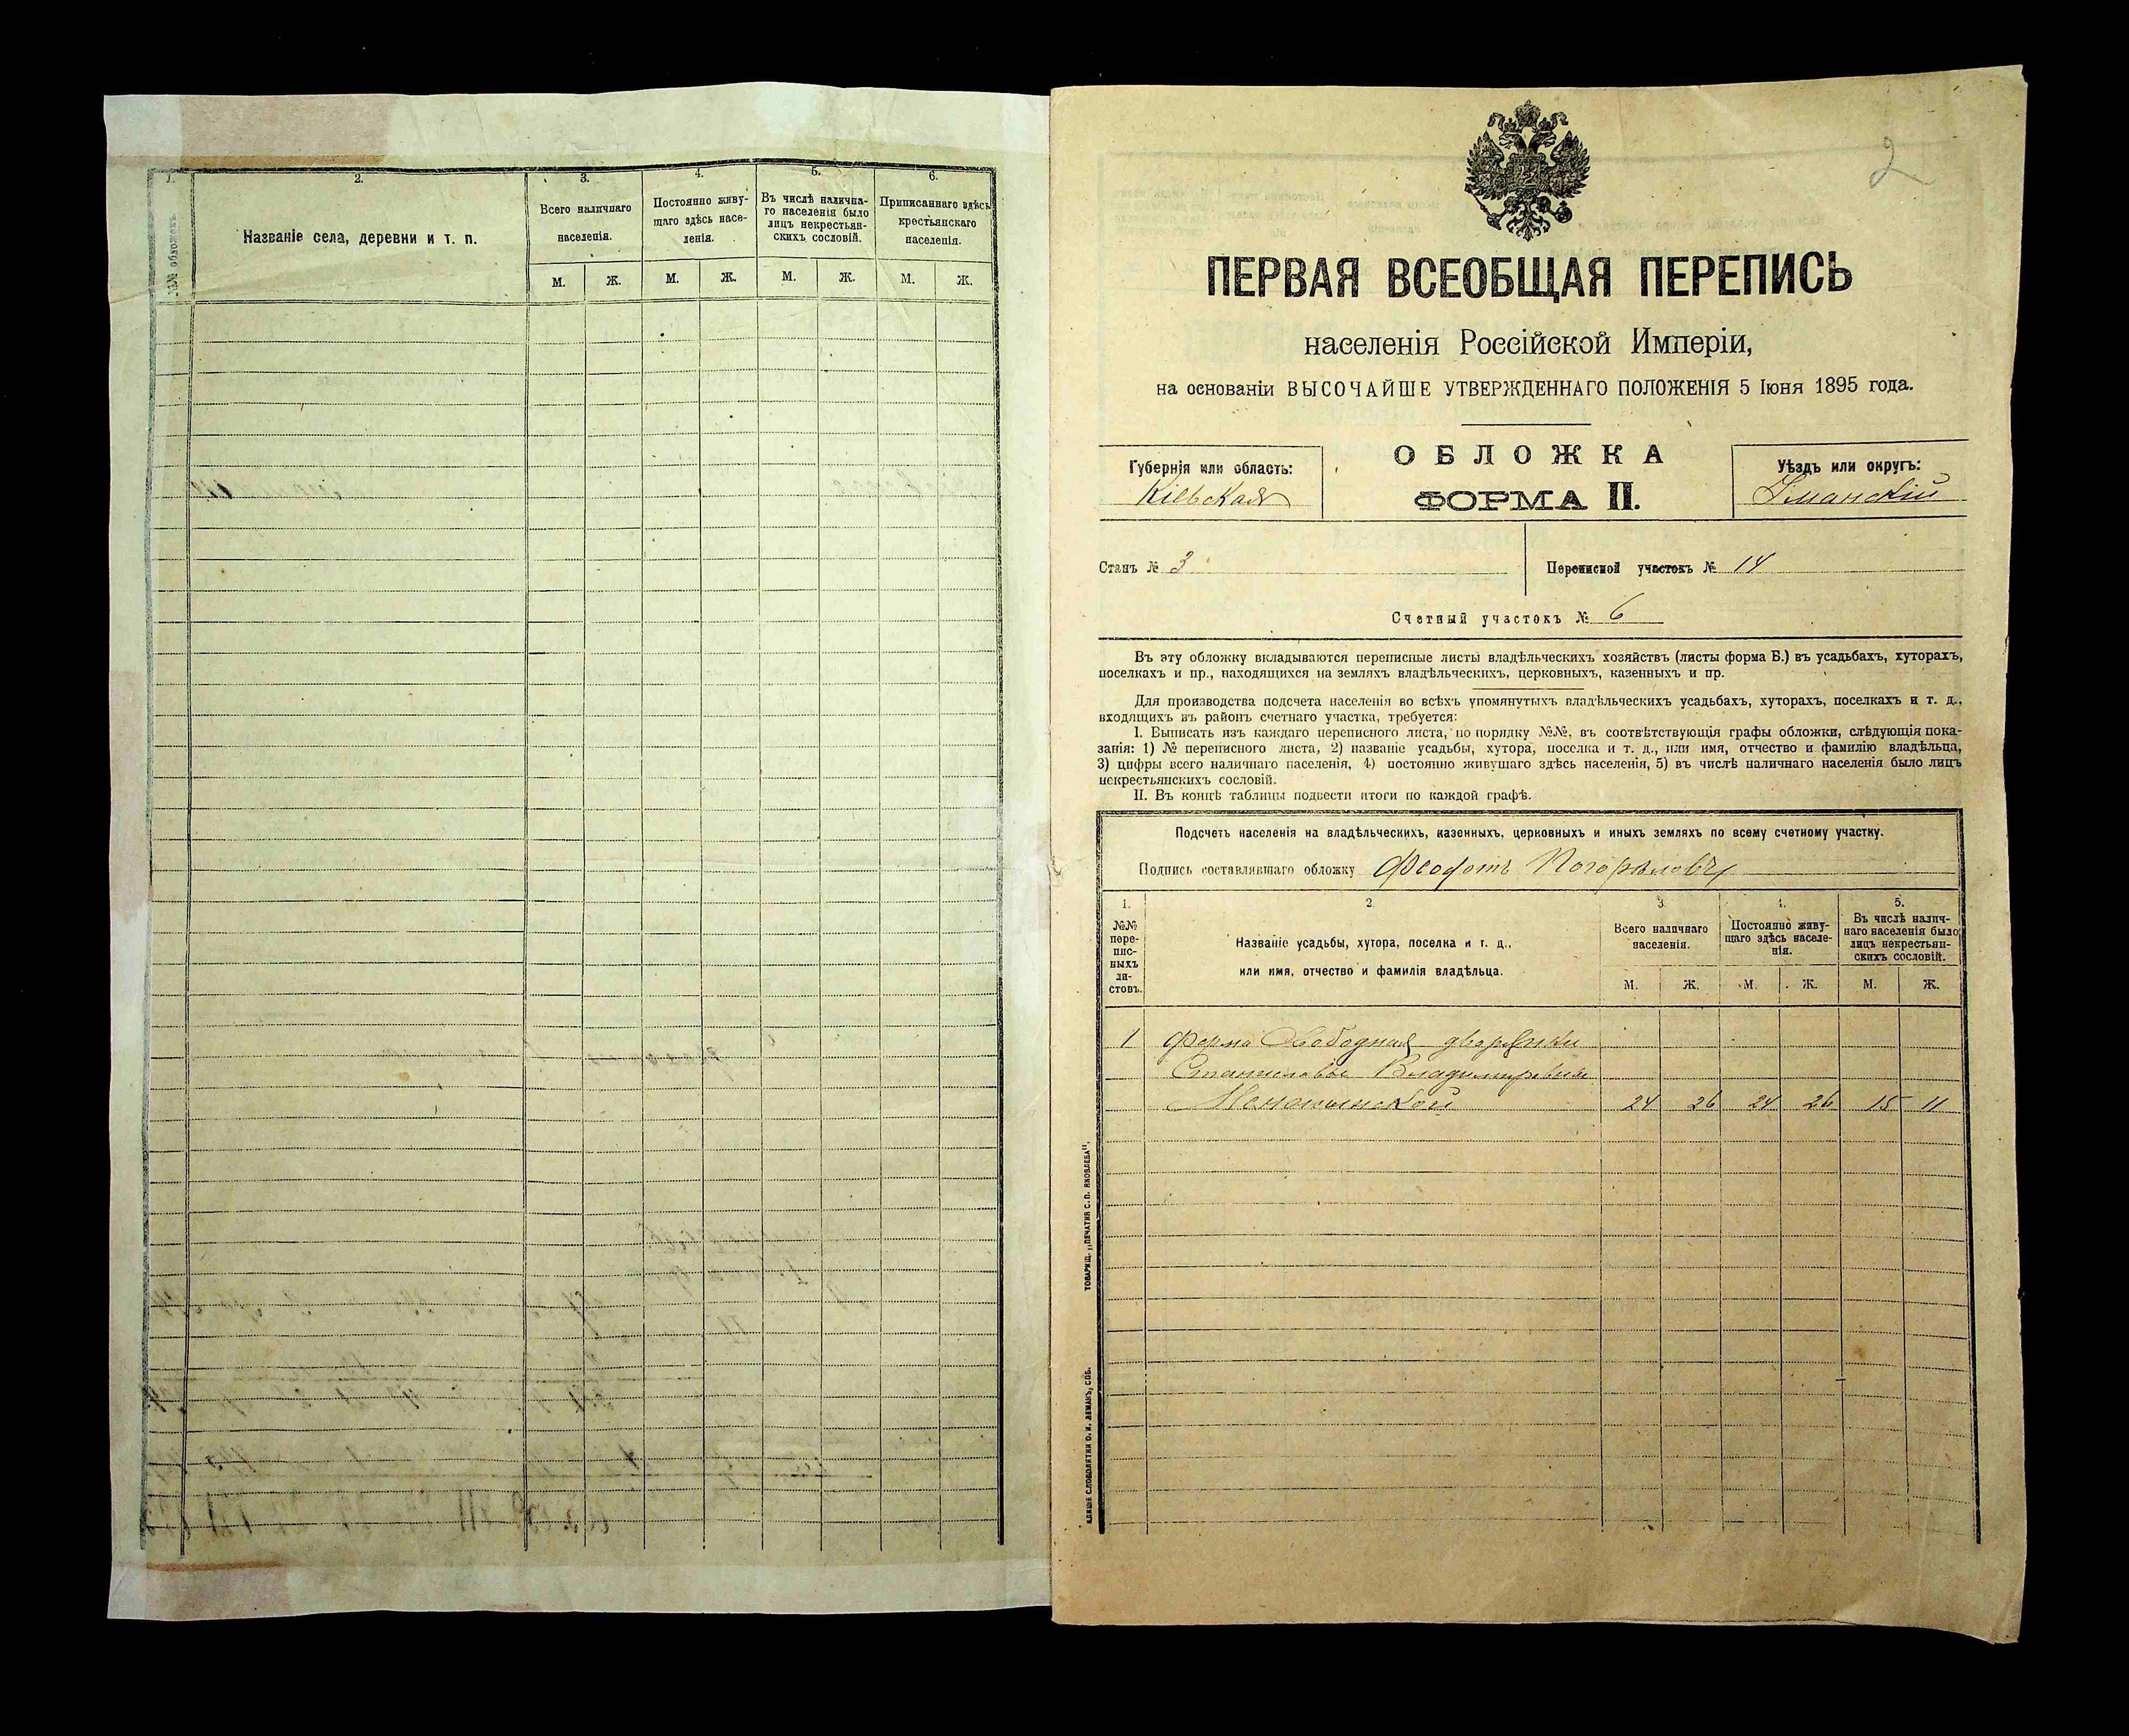 1.
2.
3.
4.
5.
6.
№№ обложекъ.
Названіе села, деревни и т. п.
Всего наличнаго
населенія.
Постоянно живу-
щаго здѣсь насе-
ленія.
Въ числѣ налична-
го населенія было
лицъ некрестьян-
скихъ сословій.
Приписаннаго здѣсь
крестьянскаго
населенія.
М. Ж. М. Ж. М. Ж. М. Ж.
2
ПЕРВАЯ ВСЕОБЩАЯ ПЕРЕПИСЬ
населенія Россійской Имперіи,
на основаніи ВЫСОЧАЙШЕ УТВЕРЖДЕННАГО ПОЛОЖЕНІЯ 5 Іюня 1895 года.
Губернія или область:
Кіевская
ОБЛОЖКА
ФОРМА II.
Уѣздъ или округъ:
Уманскій
Станъ № 3
Переписной участокъ № 14
Счетный участокъ № 6
Въ эту обложку вкладываются переписные листы владѣльческихъ хозяйствъ (листы форма Б.) въ усадьбахъ, хуторахъ,
поселкахъ и пр., находящихся на земляхъ владѣльческихъ, церковныхъ, казенныхъ и пр.
Для производства подсчета населенія во всѣхъ упомянутыхъ владѣльческихъ усадьбахъ, хуторахъ, поселкахъ и т. д.,
входящихъ въ районъ счетнаго участка, требуется:
I. Выписать изъ каждаго переписного листа, по порядку №№, въ соотвѣтствующія графы обложки, слѣдующія пока-
занія: 1) № переписного листа, 2) названіе усадьбы, хутора, поселка и т. д., или имя, отчество и фамилію владѣльца,
3) цифры всего наличнаго населенія, 4) постоянно живущаго здѣсь населенія, 5) въ числѣ наличнаго населенія было лицъ
некрестьянскихъ сословій.
II. Въ концѣ таблицы подвести итоги по каждой графѣ.
Подсчетъ населенія на владѣльческихъ, казенныхъ, церковныхъ и иныхъ земляхъ по всему счетному участку.
Подпись составлявшаго обложку Феодотъ Погорѣловъ
1.
2.
3.
4.
5.
№№
пере-
пис-
ныхъ
ли-
стовъ.
Названіе усадьбы, хутора, поселка и т. д.,
или имя, отчество и фамилія владѣльца.
Всего наличнаго
населенія.
Постоянно живу-
щаго здѣсь населе-
нія.
Въ числѣ налич-
наго населенія было
лицъ некрестьян-
скихъ сословій.
М. Ж. М. Ж. М. Ж.
1 Ферма Свободная дворянки
Станиславы Владимировны
24 26 24 26 15 11
ТОВАРИЩ. „ПЕЧАТНЯ С. П. ЯКОВЛЕВА“.
КЛИШЕ СЛОВОЛИТНИ О. И. ЛЕМАНЪ, СПБ.